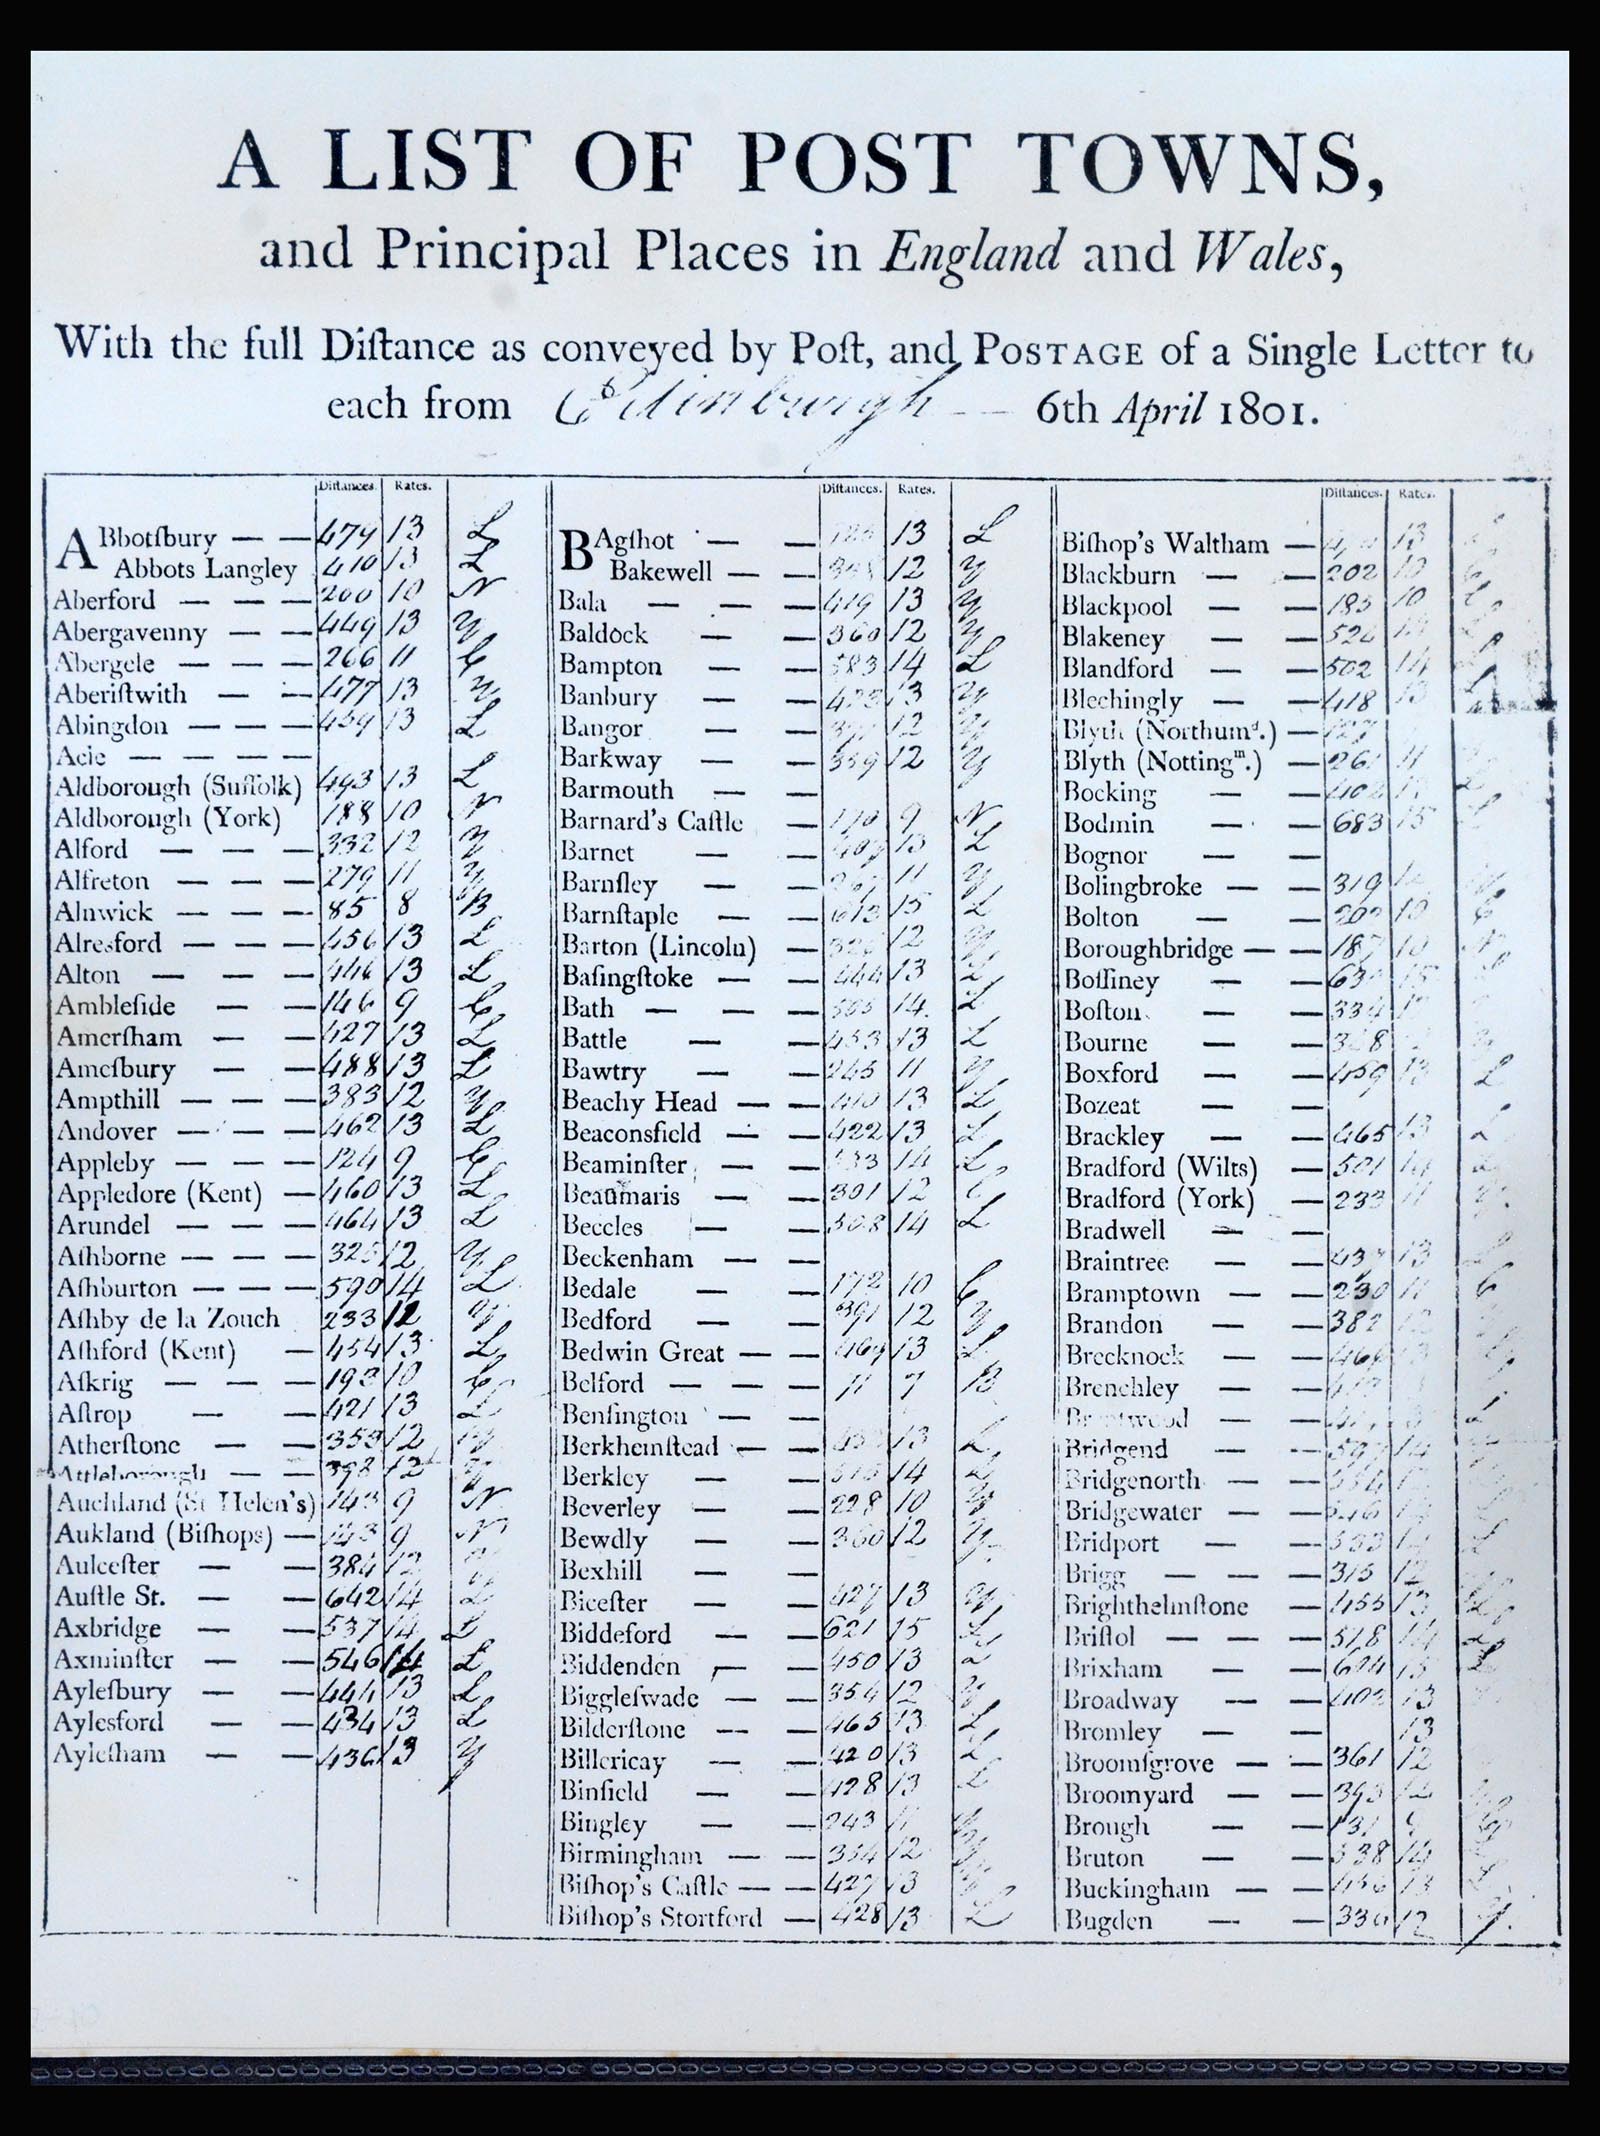 A LIST OF POST TOWNS,
and Principal Places in England and Wales,
With the full Diſtance as conveyed by Poſt, and POSTAGE of a Single Letter to
each from Edinburgh — — 6th April 1801.
Diſtances. Rates.
ABbotſbury — — 479 13 L
Abbots Langley 410 13 L
Aberford — — — 200 10 N
Abergavenny — — 449 13 Y
Abergele — — — 266 11 C
Aberiſtwith — — 477 13 Y
Abingdon — — — 459 13 L
Acle — — — —
Aldborough (Suffolk) 493 13 L
Aldborough (York) 188 10 N
Alford — — — 332 12 Y
Alfreton — — — 279 11 Y
Alnwick — — — 85 8 B
Alresford — — — 456 13 L
Alton — — — 446 13 L
Ambleſide — — 146 9 C
Amerſham — — 427 13 L
Ameſbury — — 488 13 L
Ampthill — — — 383 12 Y
Andover — — — 462 13 L
Appleby — — — 124 9 C
Appledore (Kent) — 460 13 L
Arundel — — — 464 13 L
Aſhborne — — — 325 12 Y
Aſhburton — — — 590 14 L
Aſhby de la Zouch 233 12 Y
Aſhford (Kent) — 454 13 L
Aſkrig — — — 193 10 C
Aſtrop — — 421 13 L
Atherſtone — — 353 12 Y
Attleborough — — 398 12 Y
Auckland (St Helen's) 143 9 N
Aukland (Biſhops) — 143 9 N
Aulceſter — — 384 12 Y
Auſtle St. — — 642 14 L
Axbridge — — 537 14 L
Axminſter — — 546 14 L
Ayleſbury — — 444 13 L
Aylesford — — 434 13 L
Ayleſham — — 436 13 Y
Diſtances. Rates.
BAgſhot — — 13 L
Bakewell — — 12 Y
Bala — — — 419 13 Y
Baldock — — 360 12 Y
Bampton — — 583 14 L
Banbury — — 423 13 Y
Bangor — — 12 Y
Barkway — — 359 12 Y
Barmouth — —
Barnard's Caſtle — 9 N
Barnet — — 13 L
Barnſley — — 11 Y
Barnſtaple — — 613 15 L
Barton (Lincoln) — 12 Y
Baſingſtoke — — 444 13 L
Bath — — — 505 14 L
Battle — — 453 13 L
Bawtry — — 245 11 Y
Beachy Head — — 13 L
Beaconsfield — — 422 13 L
Beaminſter — — 533 14 L
Beaumaris — — 301 12 C
Beccles — 508 14 L
Beckenham — —
Bedale — — 172 10 C
Bedford — — 391 12 Y
Bedwin Great — — 469 13 L
Belford — — — 71 7 B
Benſington — —
Berkhemſtead — — 13 L
Berkley — — 515 14 L
Beverley — — 228 10 Y
Bewdly — — 360 12 Y
Bexhill — —
Biceſter — — 427 13 Y
Biddeford — — 621 15 L
Biddenden — — 450 13 L
Biggleſwade — — 354 12 Y
Bilderſtone — — 465 13 L
Billericay — — 420 13 L
Binfield — — 428 13 L
Bingley — — 243 11 Y
Birmingham — — 354 12 Y
Biſhop's Caſtle — — 427 13 Y
Biſhop's Stortford — 428 13 L
Diſtances. Rates.
Biſhop's Waltham — 13
Blackburn — — 202 10 C
Blackpool — — 185 10 C
Blakeney — — 14
Blandford — — 502 14 L
Blechingly — — 418 13 L
Blyth (Northumd.) — 127
Blyth (Nottingm.) — 261 11
Bocking — — 402 13 L
Bodmin — — 683 15 L
Bognor — —
Bolingbroke — — 319 12
Bolton — — 202 10 C
Boroughbridge — — 187 10 N
Boſſiney — — 15
Boſton — — 334 12
Bourne — —
Boxford — — 459 13 L
Bozeat — —
Brackley — — 465 13 L
Bradford (Wilts) — 501 14 L
Bradford (York) — 233 11 Y
Bradwell — —
Braintree — — 437 13 L
Bramptown — — 230 11 C
Brandon — — 382 12
Brecknock — —
Brenchley — —
Brentwood — — L
Bridgend — — 597 14
Bridgenorth — —
Bridgewater — — 546 14 L
Bridport — — 533 14 L
Brigg — — — 315 12
Brighthelmſtone — 455 13 L
Briſtol — — — 518 14 L
Brixham — — 604 15 L
Broadway — — 402 13
Bromley — — 13
Broomſgrove — — 361 12
Broomyard — — 393 12
Brough — — 131 9
Bruton — — 538 14
Buckingham — — 456 13 L
Bugden — — 330 12 Y.